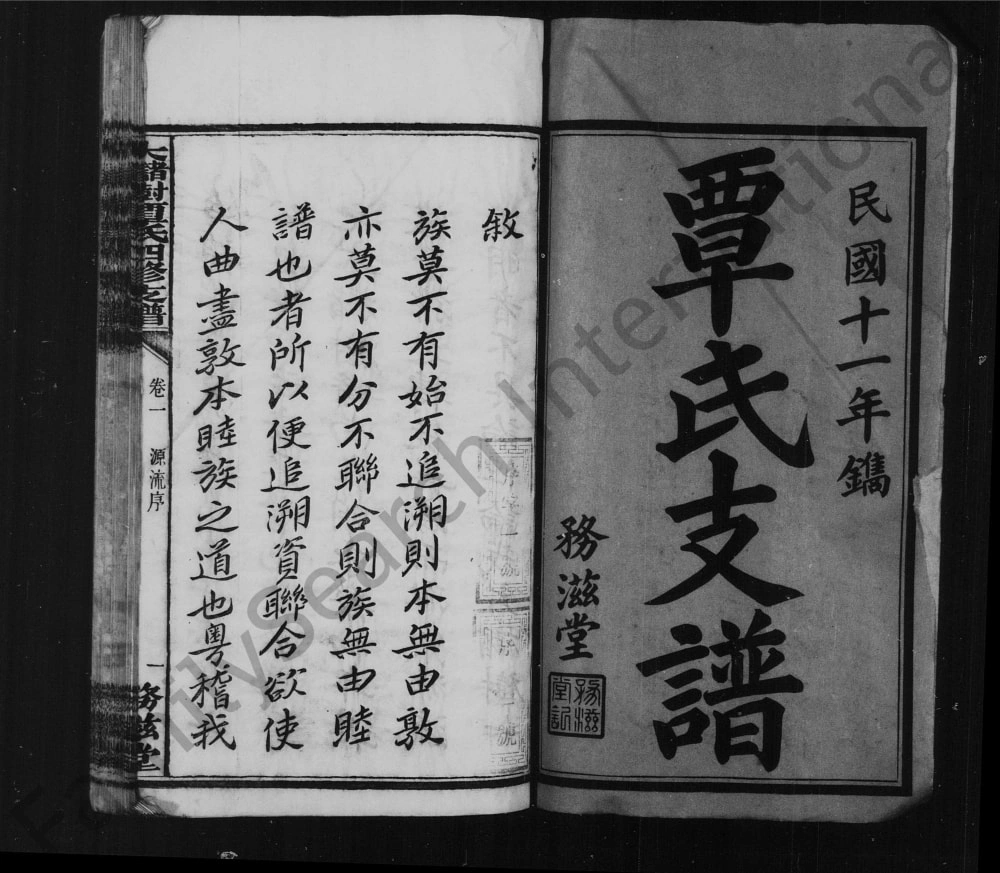 民國十一年鐫
覃氏支譜
務滋堂
務滋堂記
敘
族莫不有始不追溯則本無由敦
亦莫不有分不聯合則族無由睦
譜也者所以便追溯資聯合欲使
人曲盡敦本睦族之道也粵稽我
覃氏四修支譜
卷一
源流序
一
務滋堂
FamilySearch International